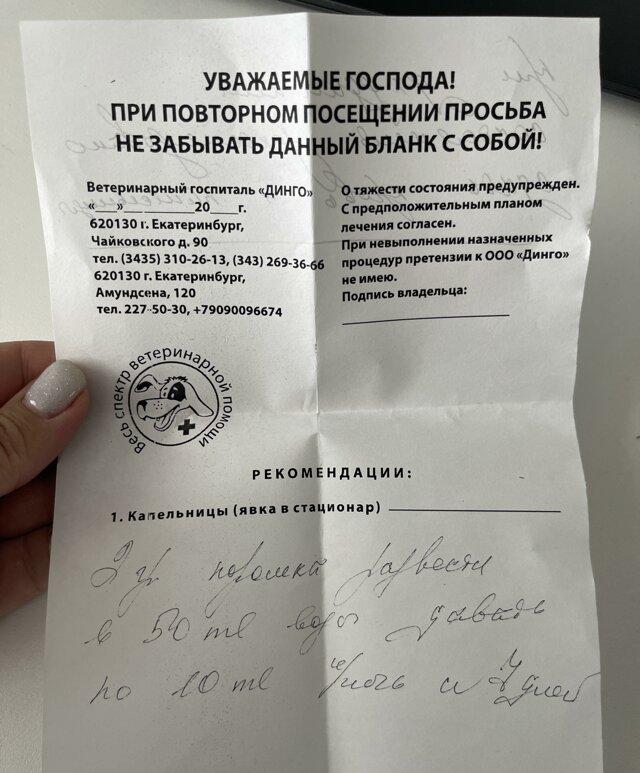 УВАЖАЕМЫЕ ГОСПОДА!
ПРИ ПОВТОРНОМ ПОСЕЩЕНИИ ПРОСЬБА
НЕ ЗАБЫВАТЬ ДАННЫЙ БЛАНК С СОБОЙ!
Ветеринарный госпиталь «ДИНГО»
«___» ___________20____г.
620130 г. Екатеринбург,
Чайковского д. 90
тел. (3435) 310-26-13, (343) 269-36-66
620130 г. Екатеринбург,
Амундсена, 120
тел. 227-50-30, +79090096674
О тяжести состояния предупрежден.
С предположительным планом
лечения согласен.
При невыполнении назначенных
процедур претензии к ООО «Динго»
не имею.
Подпись владельца:
Весь спектр ветеринарной помощи
РЕКОМЕНДАЦИИ:
1. Капельницы (явка в стационар)
2 гр порошка развести
в 50 ml воды давать
по 10 ml 7 дней